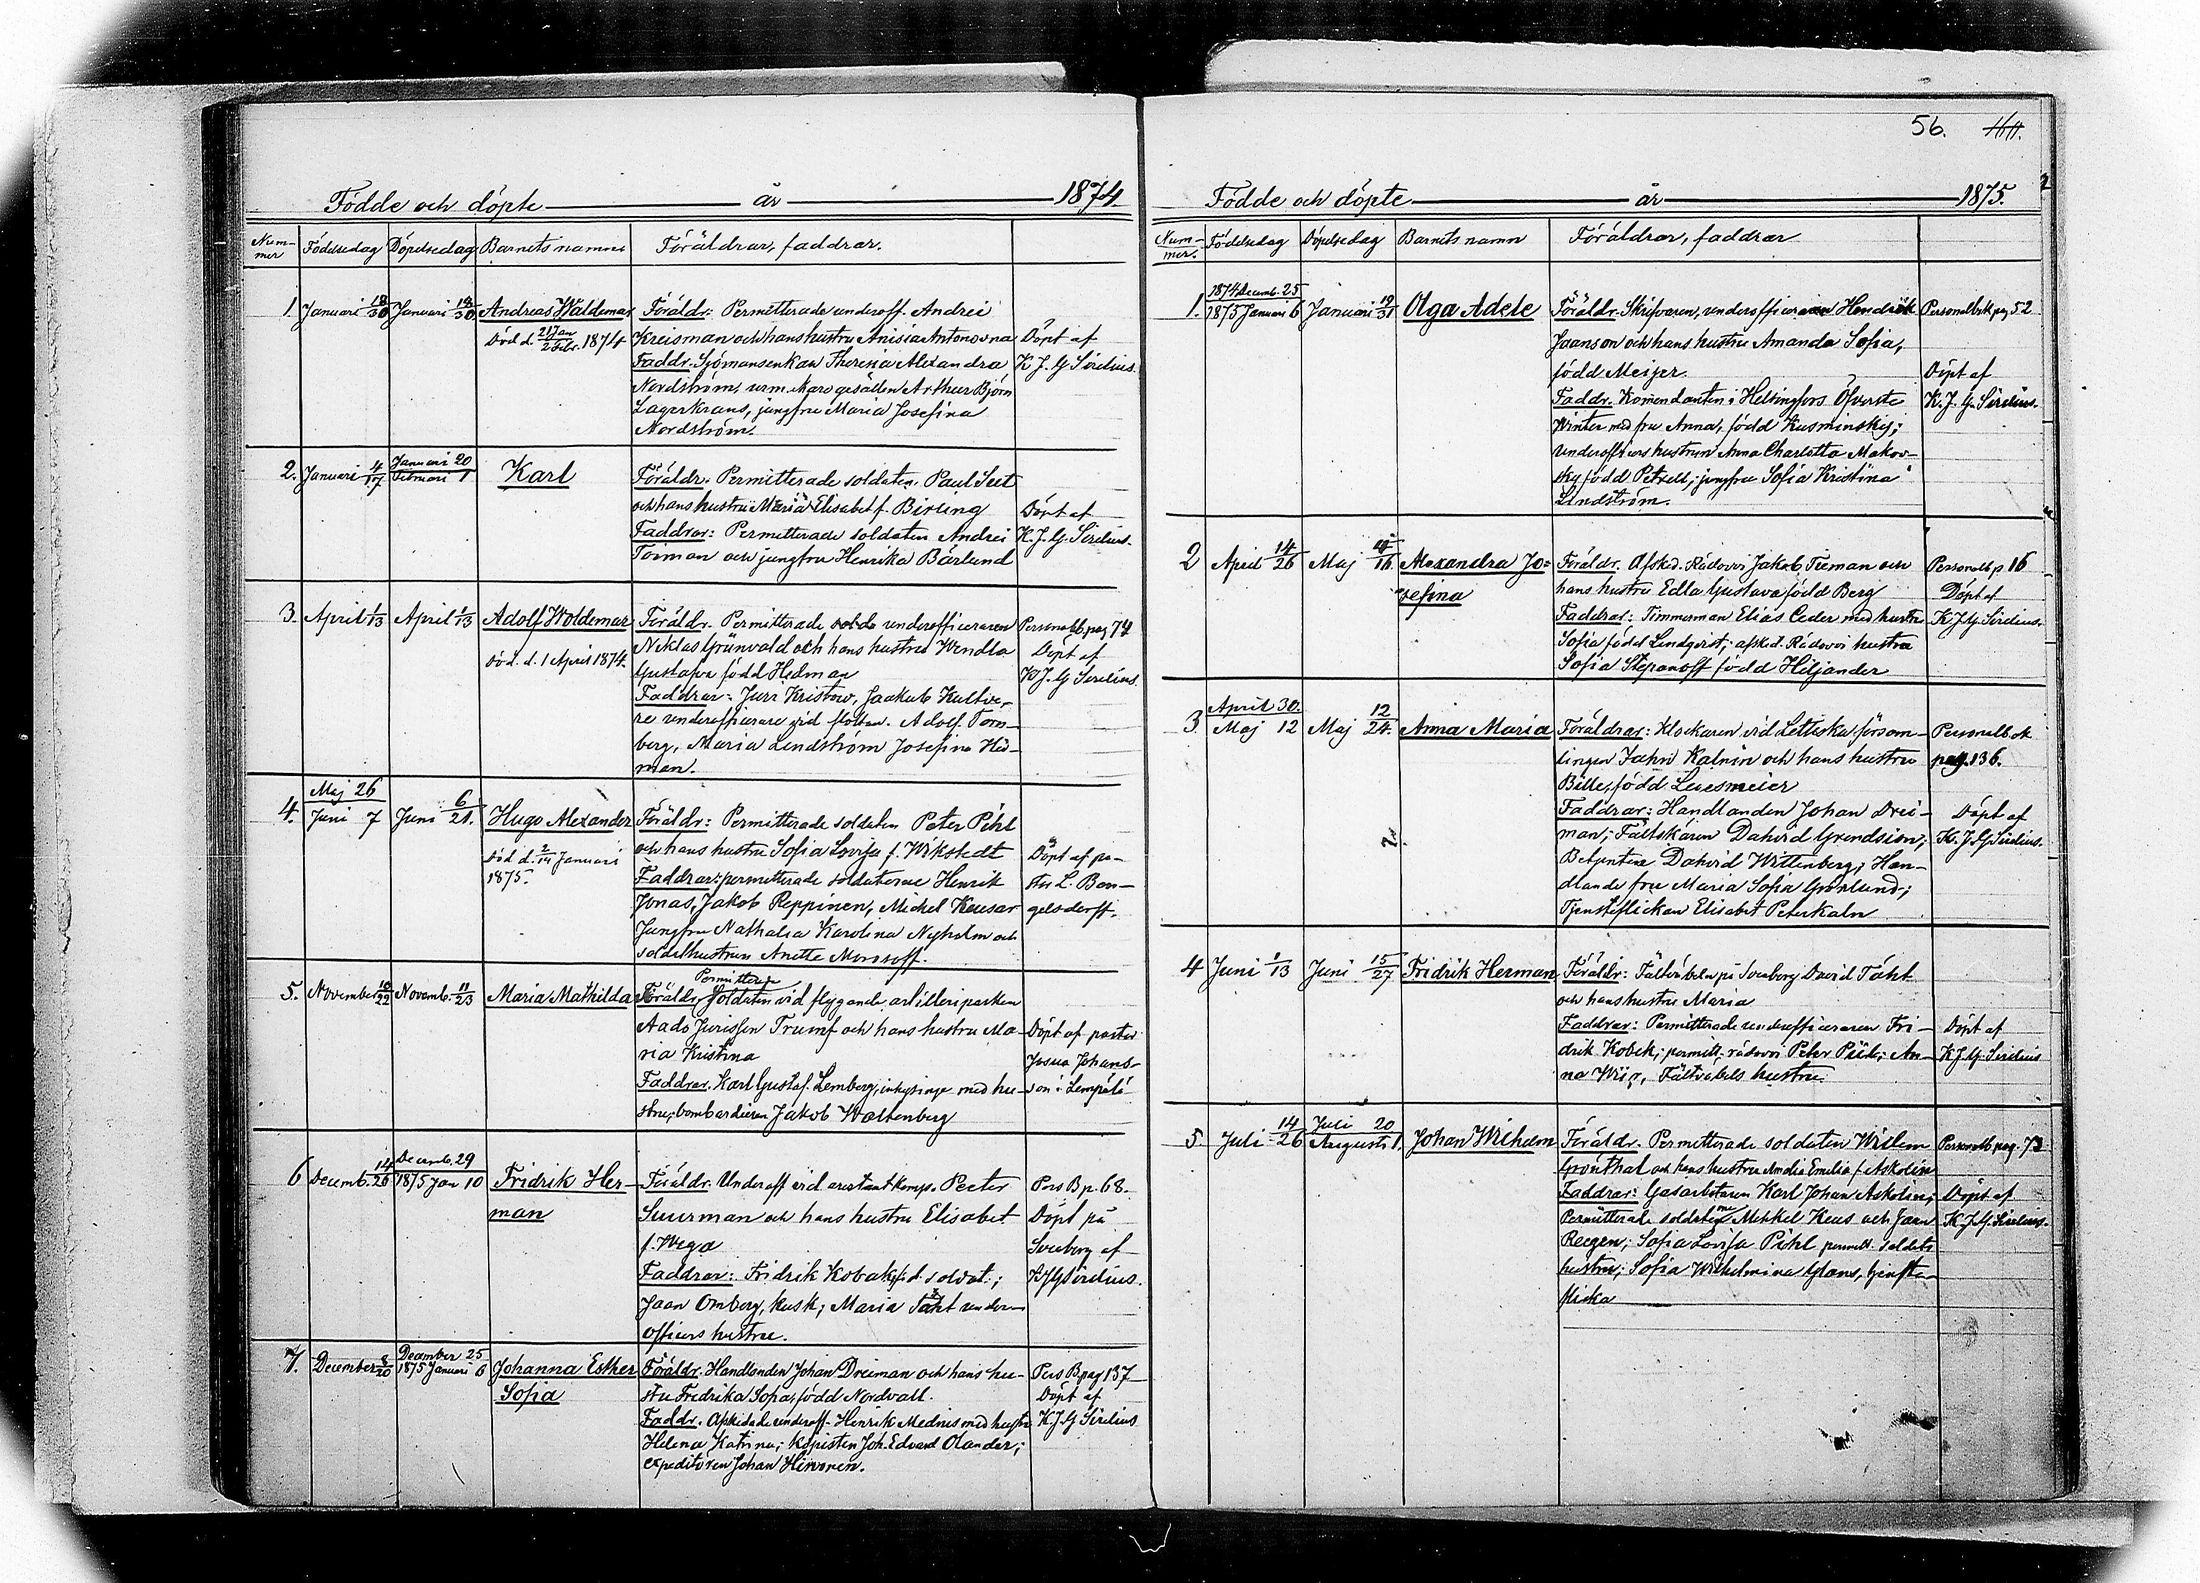 Födde och döpte år 1874.
Nummer Födelsedag Döpelsedag Barnets namn Föräldrar, faddrar.
1. Januari 18/30 Januari 18/30 Andreas Waldemar
Död d. 21 Jan/2 Febr. 1874
Föräldr: Permitterade underoff. Andrei
Kreisman och hans hustru Anisia Antonovna
Faddr. Sjömansenkan Theresia Alexandra
Nordström, gesällen Arthur Björn
Lagerkrans, jungfru Maria Josefina
Nordström.
Döpt af
K. J. G. Sirelius.
2. Januari 4/17 Januari 20/Februari 1 Karl
Föräldr. Permitterade soldaten Paul Seit
och hans hustru Maria Elisabet f. Birling
Faddrar: Permitterade soldaten Andrei
Toiman och jungfru Henrika Bärlund
Döpt af
K. J. G. Sirelius.
3. April 1/13 April 1/13 Adolf Woldemar
Död. d. 1 April 1874.
Föräldr. Permitterade underofficeraren
Niklas Grünvald och hans hustru Wendla
Gustafva född Hedman
Faddrar: Jurr Kristow, Jaakub Kultve-
re underofficerare vid flottan. Adolf Torn-
berg, Maria Lindström Josefina Hed-
man.
Personalb. pag 74
Döpt af
K J. G Sirelius.
4. Maj 26/Juni 7 Juni 6/21. Hugo Alexander
Död d. 2/14 Januari
1875.
Föräldr: Permitterade soldaten Peter Pihl
och hans hustru Sofia Lovisa f. Wikstedt
Faddrar: permitterade soldaterne Henrik
Jonas, Jakob Peppinen, Mickel Keusar
Jungfru Nathalia Karolina Nyholm och
soldathustrun Anette Morosoff.
Döpt af pa-
stor L. Ban-
gelsdorff.
5. November 10/22 Novemb. 11/23 Maria Mathilda
Permitterade
Föräldr. Soldaten vid flygande artilleriparken
Aado Jurissen Trumf och hans hustru Ma-
ria Kristina
Faddrar. Karl Gustaf Lemberg, inhysinge med hu-
stru, bombardieren Jakob Wattenberg
Döpt af pastor
Josua Johans-
son i Lempälä
6 Decemb. 14/26 Decemb. 29/1875 Jan 10 Fridrik Her-
man
Föräldr. Underoff vid arestantkomp. Peeter
Suurman och hans hustru Elisabet
f. Wega
Faddrar: Fridrik Kobak, f.d. soldat;
Jaan Omberg, kusk; Maria Taht under-
officers hustru.
Pers B p. 68.
Döpt på
Sveaborg af
KJG Sirelius.
7. December 8/20 December 25/1875 Januari 6 Johanna Esther
Sofia
Föräldr. Handlanden Johan Dreiman och hans hu-
stru Fredrika Sofia, född Nordvall.
Faddr. Afskedade underoff. Henrik Mednis med hustru
Helena Katrina; kopisten Joh. Edvard Olander;
expeditören Johan Hirvonen.
Pers B pag 137
Döpt af
K J. G Sirelius
56.
Födde och döpte år 1875.
Nummer. Födelsedag Döpelsedag Barnets namn Föräldrar, faddrar
1. 1874 Decemb. 25/1875 Januari 6 Januari 19/31 Olga Adele
Föräldr. Skrifvaren, underofficeraren Hendrik
Jaanson och hans hustru Amanda Sofia,
född Meijer.
Faddr. Komendanten i Helsingfors Öfverste
Winter med fru Anna, född Kusminsky;
underofficers hustrun Anna Charlotta Makov-
sky född Petzeld; jungfru Sofia Kristina
Lindström.
Personalbok pag 52
Döpt af
K. J. G. Sirelius.
2 April 14/26 Maj 16. Alexandra Jo-
sefina
Föräldr. Afsked. Rådovoi Jakob Tieman och
hans hustru Edla Gustava född Berg
Faddrar: Timmerman Elias Ceder med hustru
Sofia född Lindqvist; afsked. Rådovoi hustru
Sofia Stepanoff född Hiljander
Personalb. p 16
Döpt af
K J G. Sirelius.
3 April 30./Maj 12 Maj 12/24. Anna Maria
Föräldrar: Klockaren vid Lettiska försam-
lingen Jahn Kalnin och hans hustru
Bille, född Leiesmeier
Faddrar: Handlanden Johan Drei-
man; Fältskären Dahvid Grendsion;
Betjenten Dahvid Wittenberg; Han-
dlande fru Maria Sofia Grönlund;
Tjensteflickan Elisabet Peterkaln
Personalbok
pag. 136.
Döpt af
K. J G Sirelius.
4 Juni 1/13 Juni 15/27 Fridrik Herman
Föräldr: Fältväbeln på Sveaborg David Täht
och hans hustru Maria
Faddrar: Permitterade underofficeraren Fri-
drik Kobek; permitt. rådovoi Peter Piil; An-
na Wiia, Fältväbels hustru.
Döpt af
K J G. Sirelius
5 Juli 14/26 Juli 20/Augusti 1. Johan Wilhelm
Föräldr. Permitterade soldaten Wilem
Grönthal och hans hustru Amalia Emilia f. Askolin
Faddrar: Gasarbetaren Karl Johan Askolin;
Permitterade soldaterne Mihkel Keus och Jaan
Reegen; Sofia Lovisa Pihl permitt. soldats
hustru; Sofia Wilhelmina Glans, tjenste-
flicka
Personalb pag. 73
Döpt af
K. J. G. Sirelius.